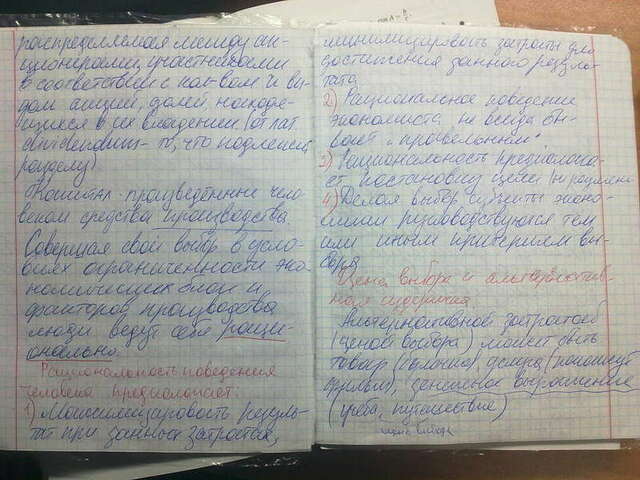 распределяемая между ак-
ционерами, участниками
в соответствии с кол-вом и ви-
дом акций, долей, находя-
щихся в их владении (от лат.
что подлежит
разделу).
Капитал - произведённые чело
веком средства производства.
Совершая свой выбор в усло-
виях ограниченности эко-
номических благ и
факторов производства
люди ведут себя раци-
онально.
Рациональность поведения
человека предполагает:
1) Максимизировать резуль-
тат при данных затратах,
минимизировать затраты для
достижения данного резуль-
тата
2) Рациональное поведение
экономиста не всегда бы-
вает
3) Рациональность предполага-
ет постановку цели
4) Делая выбор субъекты эконо-
мики руководствуются тем
или иным критерием вы-
бора
Цена выбора и альтернатив-
ная издержка
Альтернативной затратой
(ценой выбора) может быть
товар, услуга
денежное выражение
(учеба, путешествие)